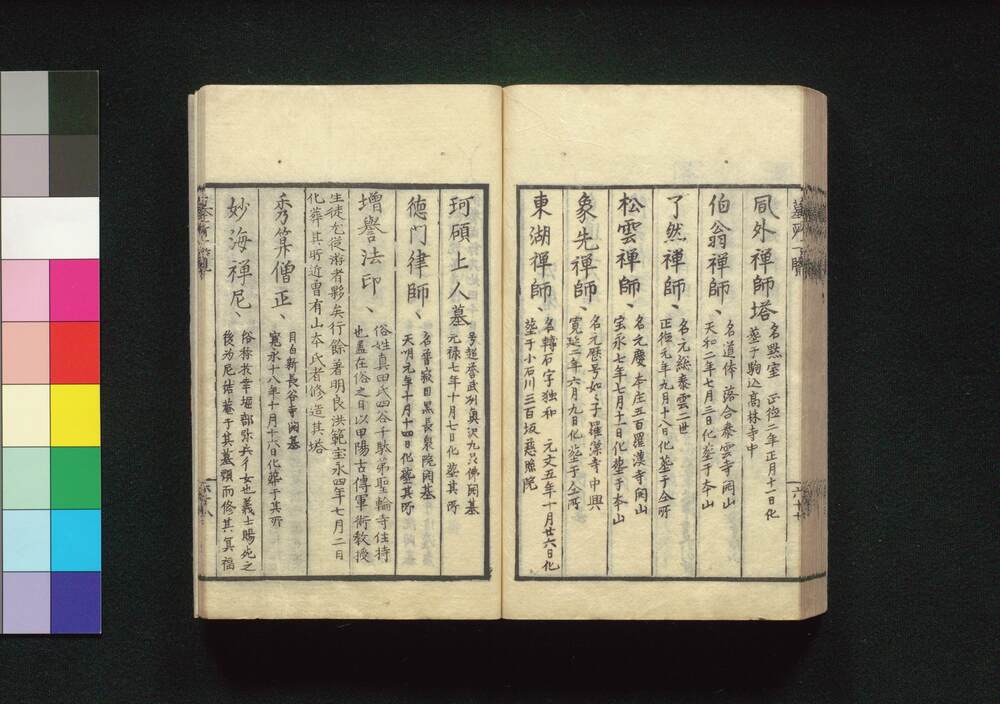 凬外禅師塔
名黙室 正徳二年正月十一日化
葬于駒込高林寺中
伯翁禅師、
名道俸 落合泰雲寺開山
天和二年七月三日化葬于本山
了然禅師、
名元総泰雲二世
正徳元年九月十八日化葬于仝所
松雲禅師、
名元慶本庄五百羅漢寺開山
宝永七年七月十一日化葬于本山
象先禅師、
名元歴号如々子羅漢寺中興
寛延二年六月九日化葬于仝所
東湖禅師、
名轉石字独和 元文五年十月廿六日化
葬于小石川三百坂慈照院
珂碩上人墓
号超誉武州奥沢九品佛開基
元禄七年十月七日化葬其所
徳门律師、
名普寂目黒長泉院開基
天明元年十月十四日化葬其所
增譽法印、
俗姓真田氏四谷千駄谷聖輪寺住持
也蓋在俗之日以甲陽古傳軍術教授
生徒尤從游者夥矣行餘著明良洪範宝永四年七月二日
化葬其所近曽有山本氏者修造其塔
秀算僧正、
目白新長谷寺開基
寛永十八年十月十六日化葬于其所
妙海禅尼、
俗称於幸堀部弥兵衛女也義士賜死之
後為尼结菴于其墓頭而修其冥福